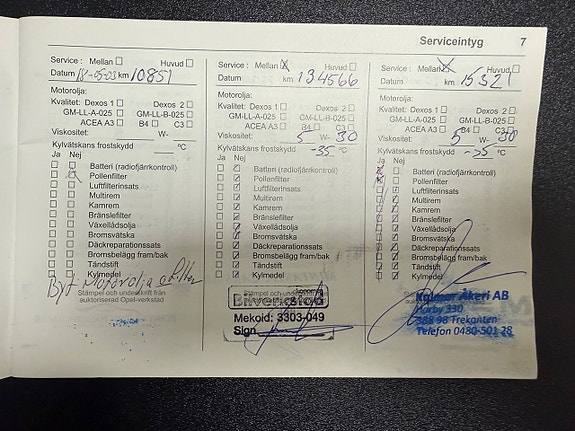 Serviceintyg 7
Service : Mellan Huvud
Datum 18-05-03 km 10851
Motorolja:
Kvalitet: Dexos 1 Dexos 2
GM-LL-A-025 GM-LL-B-025
ACEA A3 B4 C3
Viskositet: W-
Kylvätskans frostskydd °C
Ja Nej
Batteri (radiofjärrkontroll)
Pollenfilter
Luftfilterinsats
Multirem
Kamrem
Bränslefilter
Växellådsolja
Bromsvätska
Däckreparationssats
Bromsbelägg fram/bak
Tändstift
Kylmedel
Byt Motorolja o filter
Stämpel och underskrift från
auktoriserad Opel-verkstad
Service : Mellan Huvud
Datum km 134566
Motorolja:
Kvalitet: Dexos 1 Dexos 2
GM-LL-A-025 GM-LL-B-025
ACEA A3 B4 C3
Viskositet: 5 W- 30
Kylvätskans frostskydd -35 °C
Ja Nej
Batteri (radiofjärrkontroll)
Pollenfilter
Luftfilterinsats
Multirem
Kamrem
Bränslefilter
Växellådsolja
Bromsvätska
Däckreparationssats
Bromsbelägg fram/bak
Tändstift
Kylmedel
Mekoid: 3303-049
Sign
Service : Mellan Huvud
Datum km 15321
Motorolja:
Kvalitet: Dexos 1 Dexos 2
GM-LL-A-025 GM-LL-B-025
ACEA A3 B4 C3
Viskositet: 5 W- 30
Kylvätskans frostskydd -35 °C
Ja Nej
Batteri (radiofjärrkontroll)
Pollenfilter
Luftfilterinsats
Multirem
Kamrem
Bränslefilter
Växellådsolja
Bromsvätska
Däckreparationssats
Bromsbelägg fram/bak
Tändstift
Kylmedel
Kalmar Åkeri AB
330
388 98 Trekanten
Telefon 0480-501 28